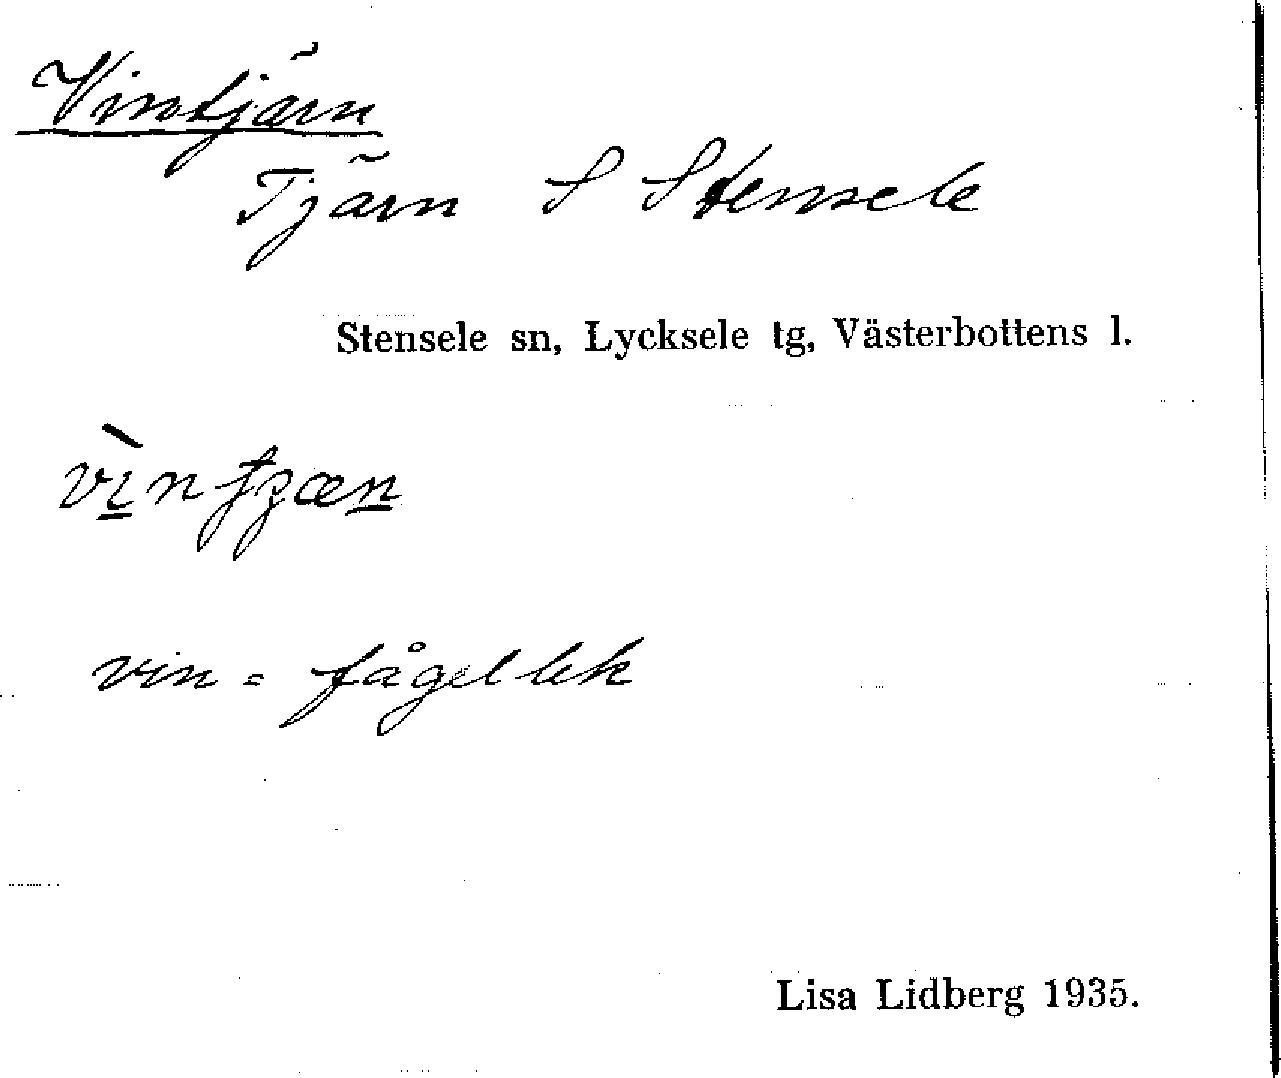 Vintjärn
Tjärn S Stensele
Stensele sn, Lycksele tg, Västerbottens l.
vin = fågellek
Lisa Lidberg 1935.